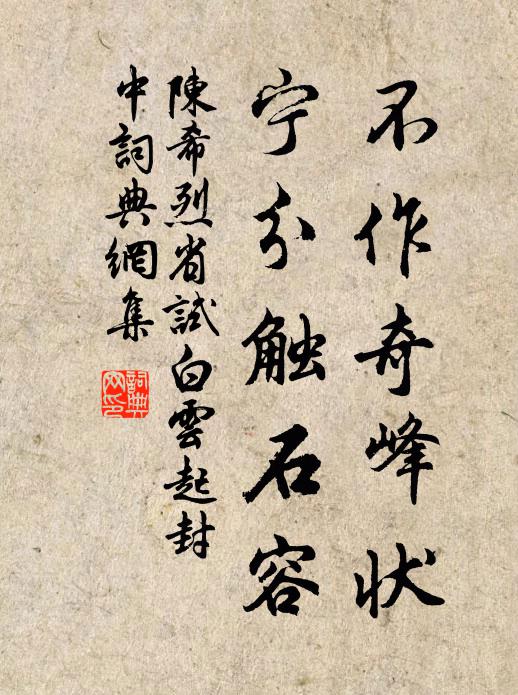 不作奇峰状
宁分触石容
陳希烈省試白雲起封
中詞典網集
詞典
网印